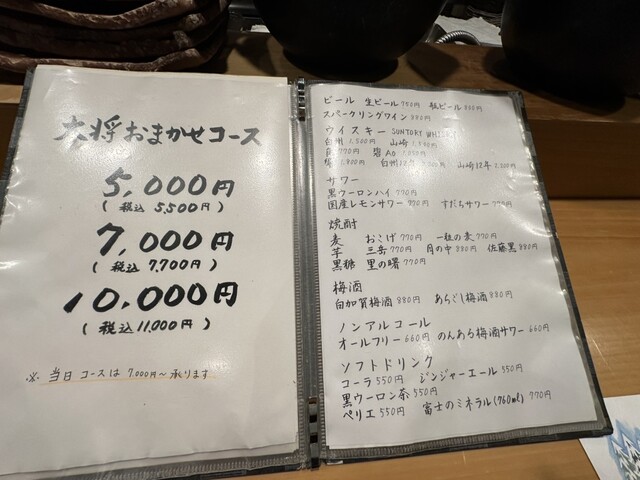 大将おまかせコース
5,000円
(税込 5,500円)
7,000円
(税込 7,700円)
10,000円
(税込 11,000円)
※ 当日コースは 7,000円〜承ります
ビール 生ビール 780円 瓶ビール 880円
スパークリングワイン 880円
ウイスキー SUNTORY
白州 山崎
770円 碧Ao
白州12年 山崎12年
サワー
黒ウーロンハイ 770円
国産レモンサワー 770円 すだちサワー 770円
焼酎
麦 おこげ 770円 一粒の麦 770円
芋 三岳 770円 月の中 880円 佐藤黒 880円
黒糖 里の曙 770円
梅酒
白加賀梅酒 880円 あらごし梅酒 880円
ノンアルコール
オールフリー 660円 のんある梅酒サワー 660円
ソフトドリンク
コーラ 550円 ジンジャーエール 550円
黒ウーロン茶 550円
ペリエ 550円 富士のミネラル(760ml) 770円